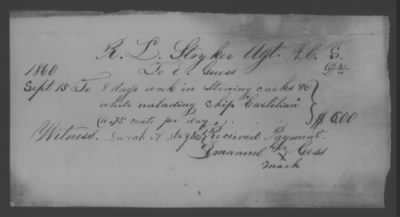 R. L. Stryker Agt. A. C. S.
To E. Guess Dr.
1860
Sept 15 To 8 days work in Stowing casks &c
while unlading Ship "Castilian"
@ 75 cents per day $ 6.00
Witness. Recieved Payment.
Emanuel his X Gess
mark